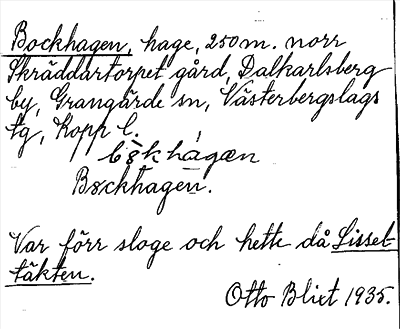 Bockhagen, hage, 250 m. norr
Skräddartorpet gård, Dalkarlsberg
by, Grangärde sn, Västerbergslags
tg, Kopp l.
Bockhagen.
Var förr sloge och hette då Lissel-
täkten.
Otto Blixt 1935.